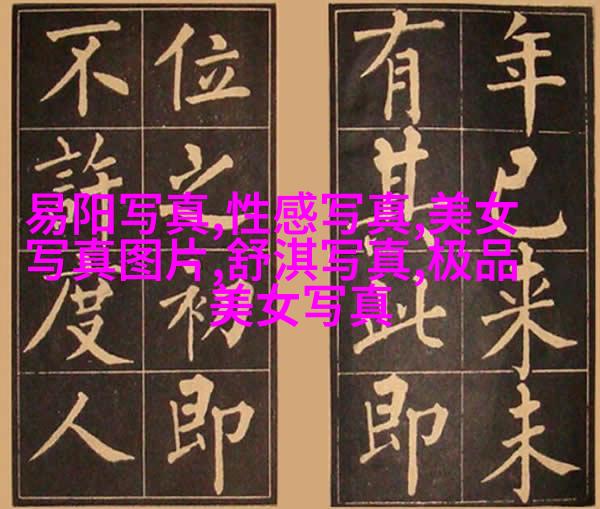 年已来未
有其此即
位之初即
不許度人
易阳写真,性感写真,美女
写真图片,舒淇写真,极品
美女写真